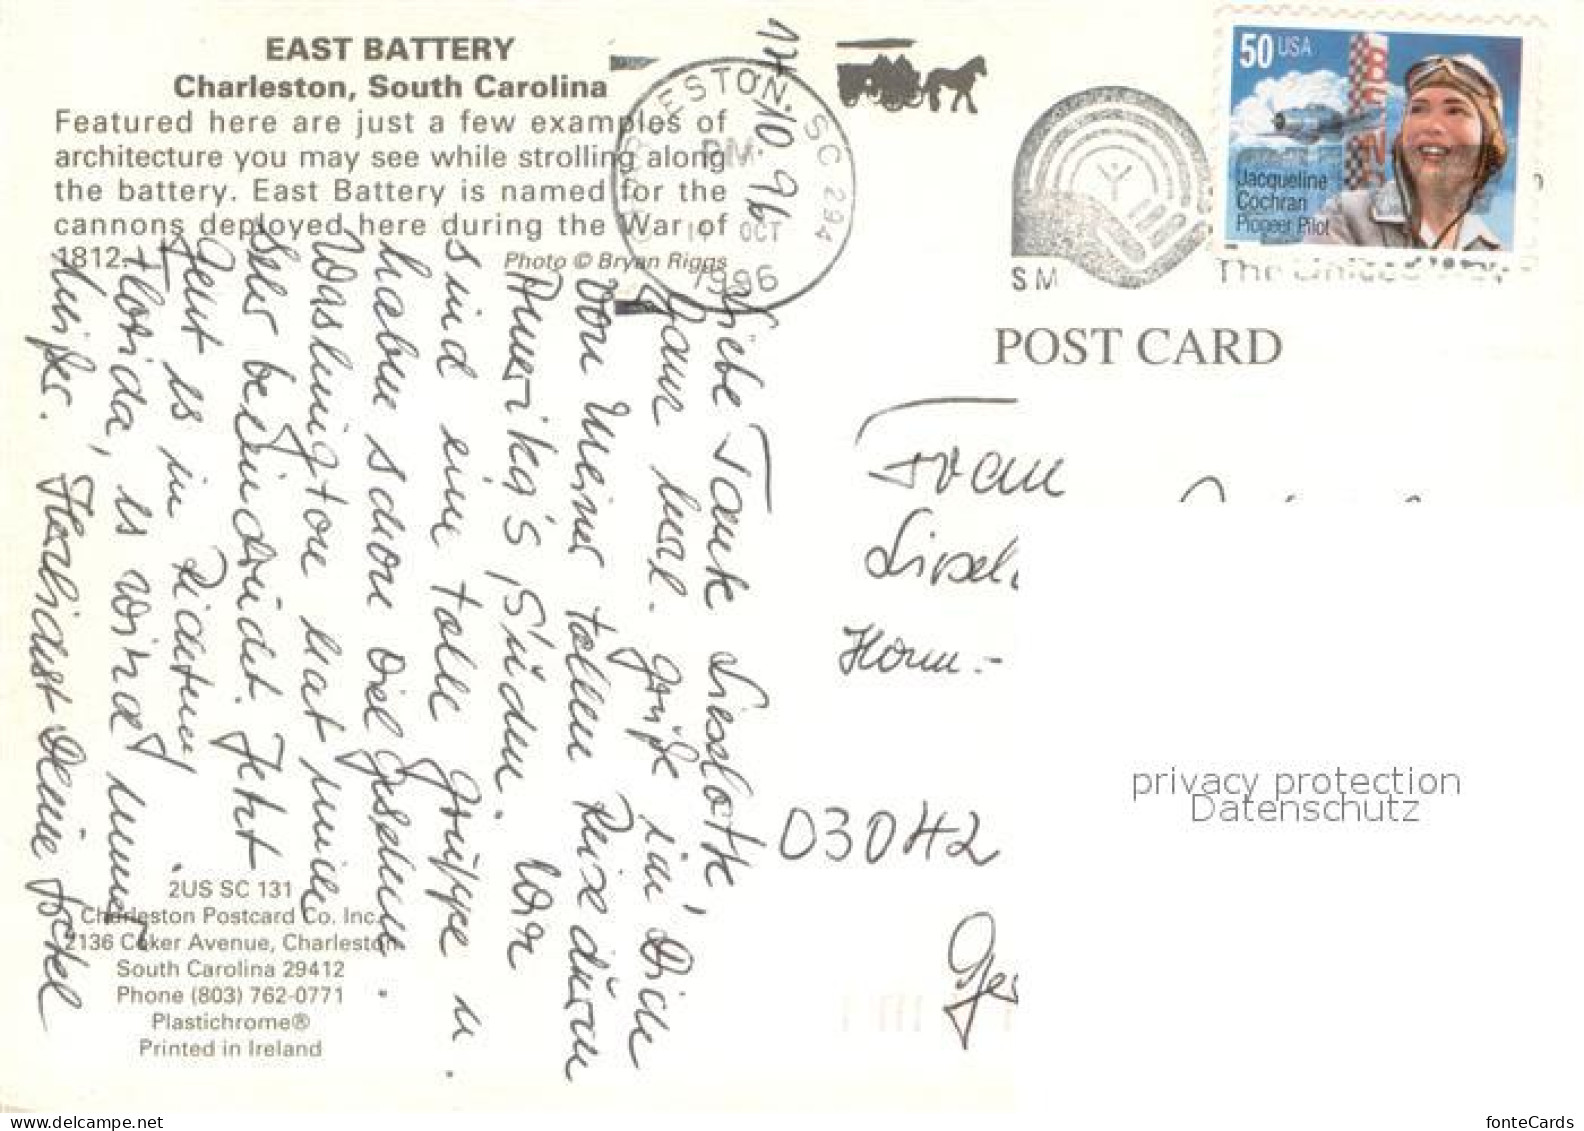 EAST BATTERY
Charleston, South Carolina
Featured here are just a few examples of
architecture you may see while strolling along
the battery. East Battery is named for the
cannons deployed here during the War of
1812.
Photo © Bryan Riggs
ESTON, SC 294
PM
OCT
1996
50 USA
Jacqueline
Cochran
Pioneer Pilot
SM
The United Way
POST CARD
14.10.96
Liebe Tante Lieselotte,
ganz herzl. Grüße in Dich
von meiner tollen Reise durch
Amerika's Süden. Wir
sind eine tolle Gruppe u.
haben schon viel gesehen.
Washington hat mich
sehr beeindruckt. Jetzt
geht es in Richtung
Florida, es wird immer
heißer. Herzlichst Deine
Frau
Horn.-
03042
Ger
privacy protection
Datenschutz
2US SC 131
Charleston Postcard Co. Inc.
2136 Coker Avenue, Charleston
South Carolina 29412
Phone (803) 762-0771
Plastichrome®
Printed in Ireland
www.delcampe.net
fonteCards